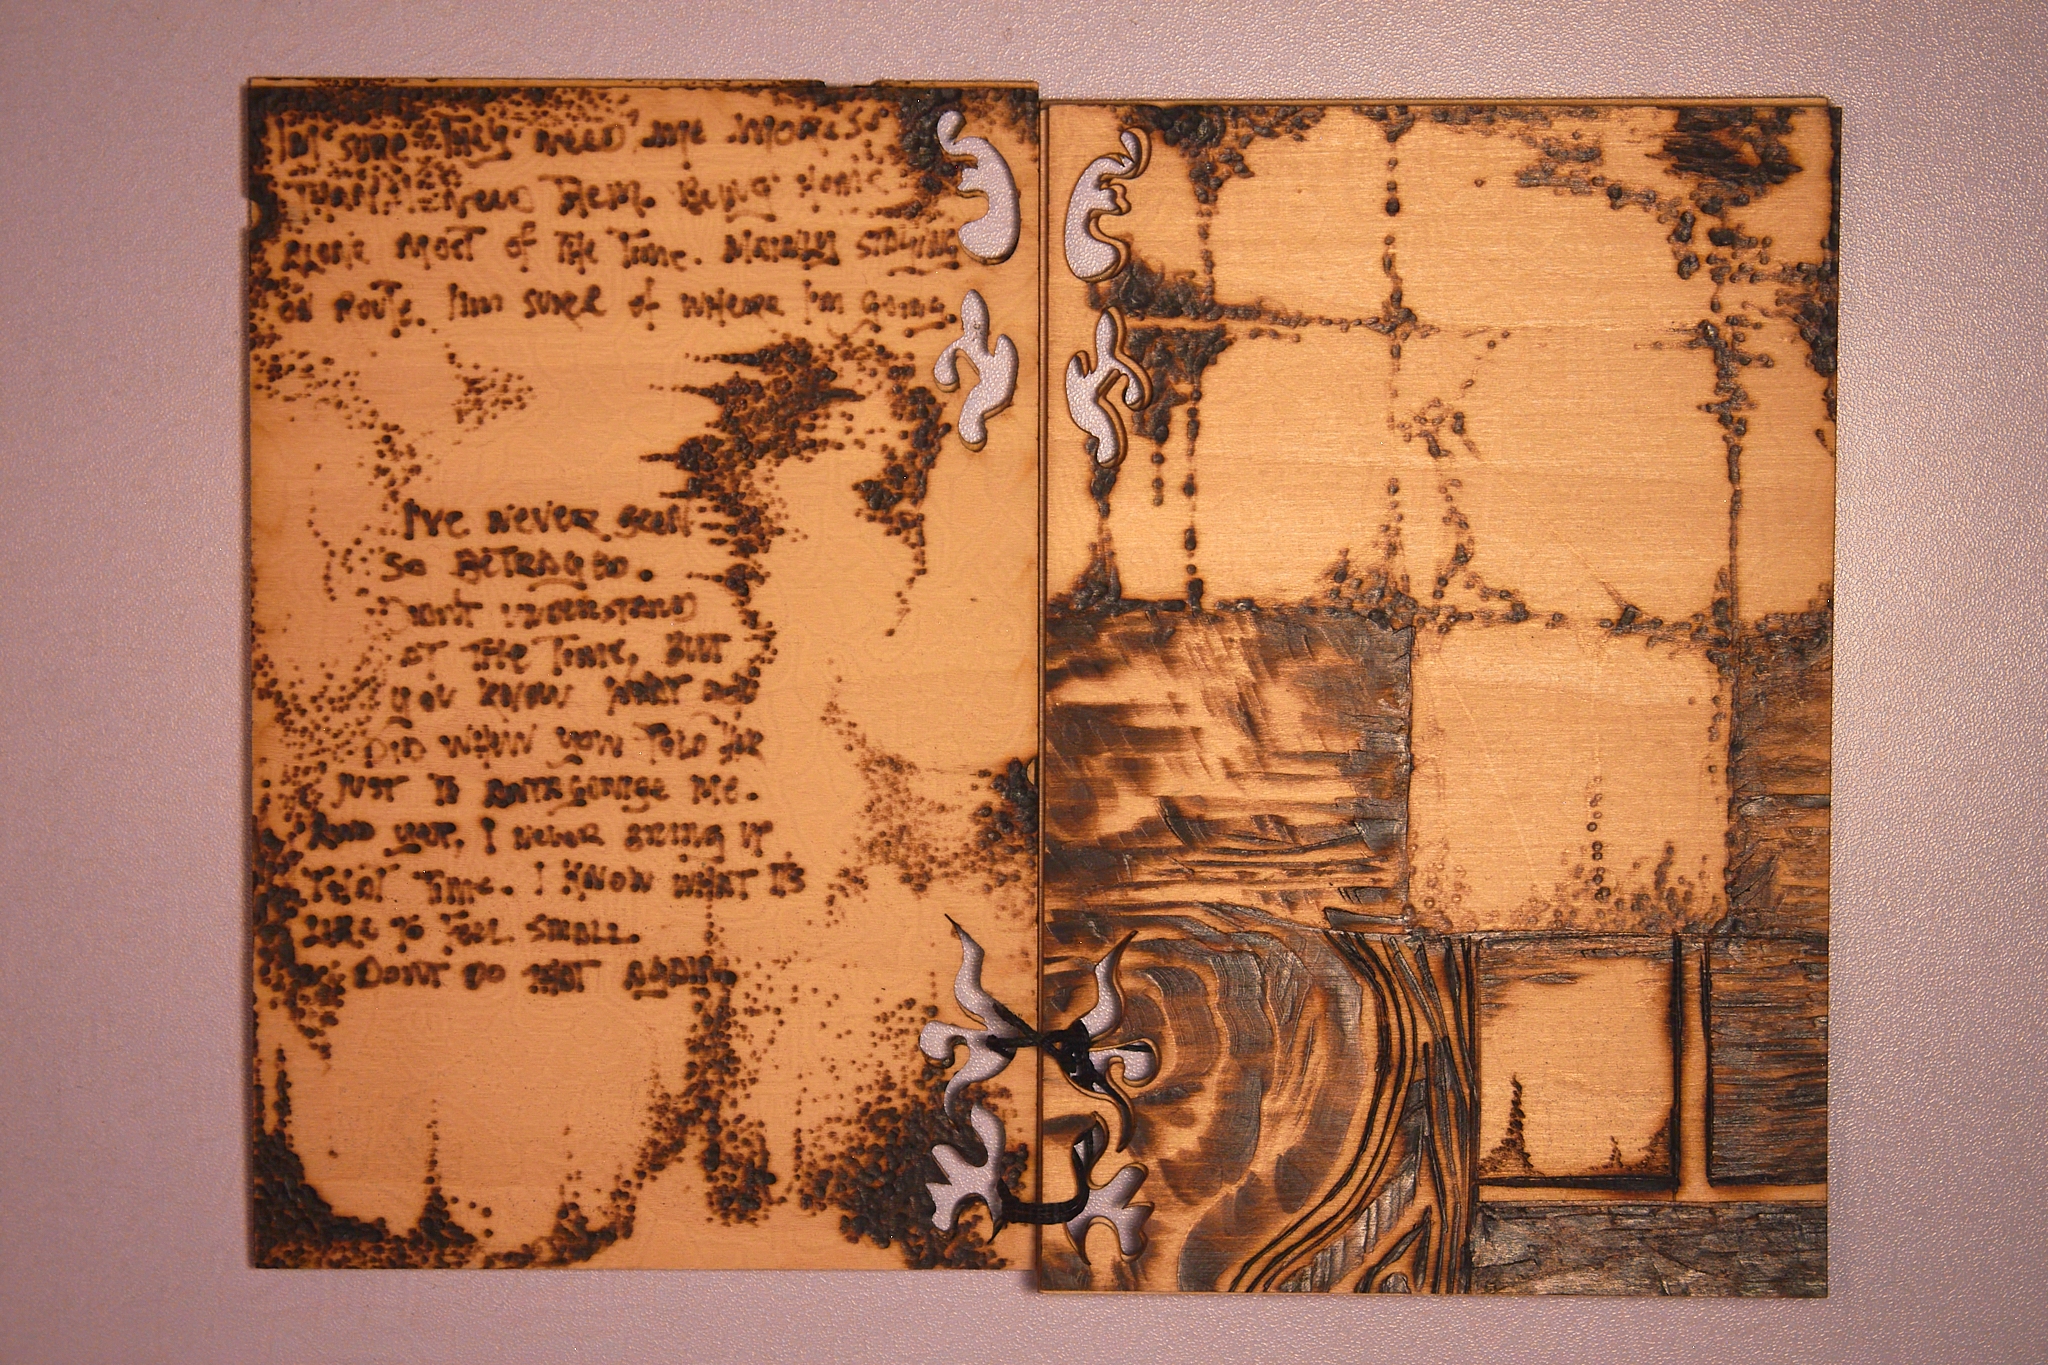 I'm sure they need me moreso
than I need them. Being home
alone most of the time. Mainly staying
on route. I'm surer of where I'm going.
I've never been
so betrayed.
Don't understand
at the time, but
you know what you
did when you told her
just to antagonize me.
And yup, I never bring up
that time. I know what it's
like to feel small.
Dont do that again.